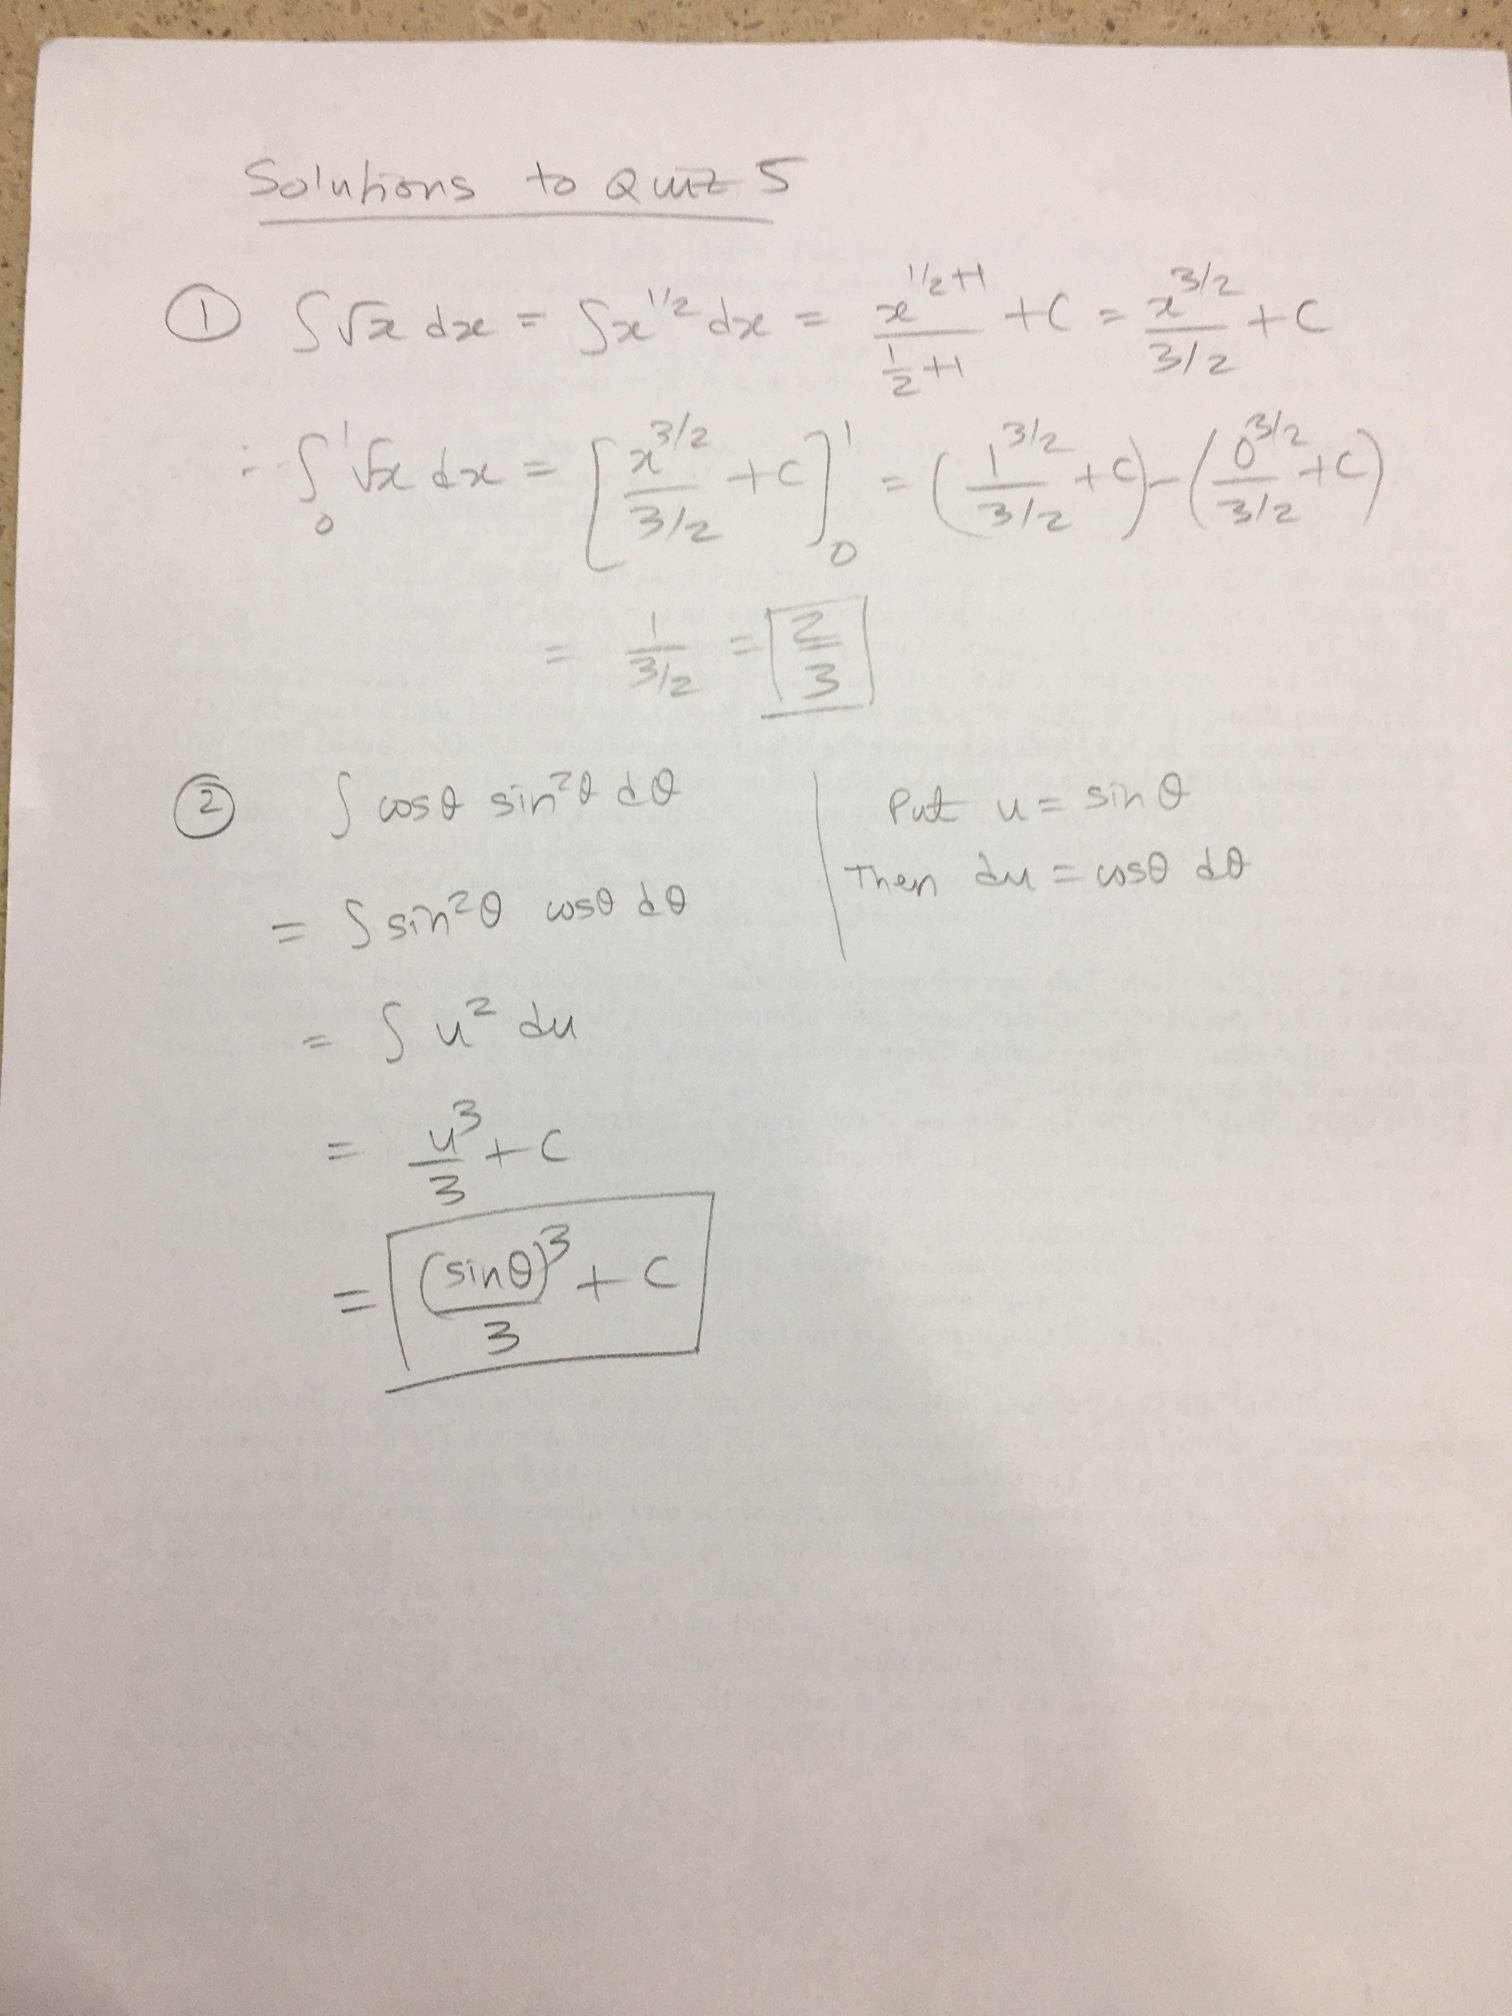 Solutions to Quiz 5
① ∫√x dx = ∫x^{1/2} dx = x^{1/2+1}/(1/2+1) + C = x^{3/2}/(3/2) + C
∴ ∫_0^1 √x dx = [x^{3/2}/(3/2) + C]_0^1 = (1^{3/2}/(3/2) + C) - (0^{3/2}/(3/2) + C)
= 1/(3/2) = 2/3
② ∫ cosθ sin²θ dθ | Put u = sinθ
= ∫ sin²θ cosθ dθ | Then du = cosθ dθ
= ∫ u² du
= u³/3 + C
= (sinθ)³/3 + C